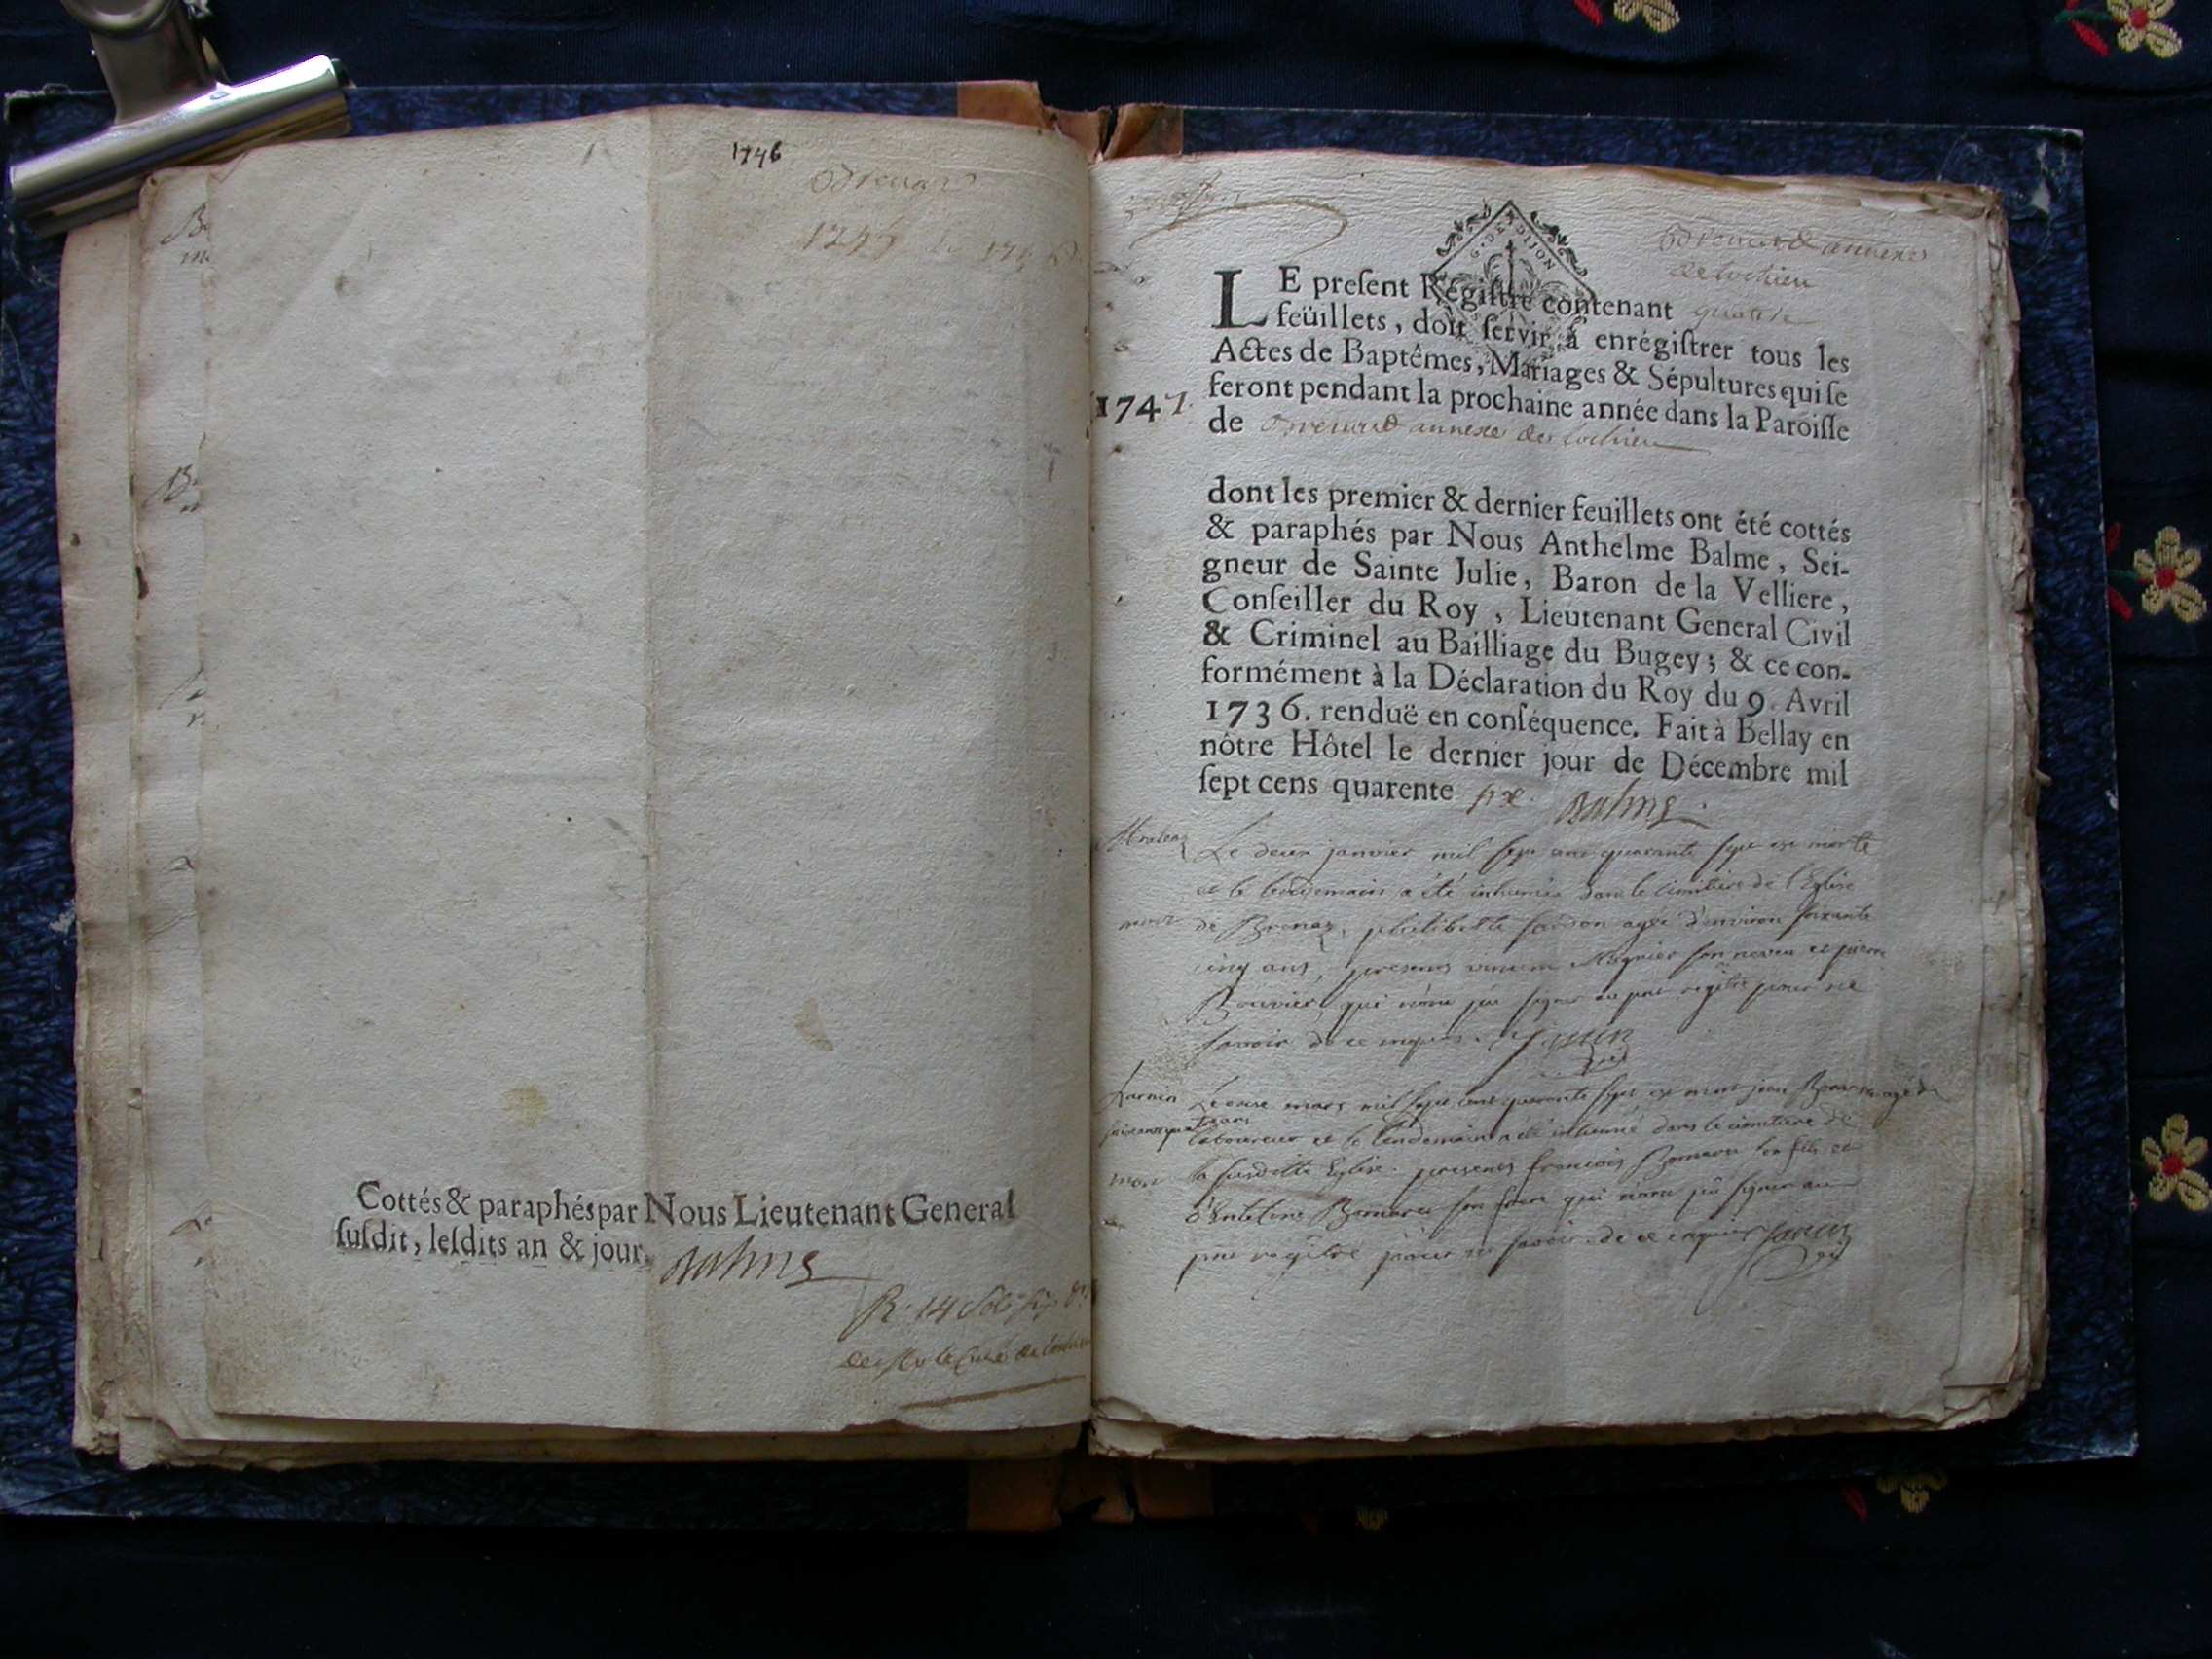 1746
1745
Cottés & paraphés par Nous Lieutenant General
ſuſdit, leſdits an & jour. Balme
R. 14 sols six
le Curé de Lochieu
G. DE DIJON
annexe
de Lochieu
LE preſent Régiſtre contenant quatre
feüillets, doit ſervir à enrégiſtrer tous les
Actes de Baptêmes, Mariages & Sépultures qui ſe
feront pendant la prochaine année dans la Paroiſſe
1747.
de Brenaz annexe de Lochieu
dont les premier & dernier feuillets ont été cottés
& paraphés par Nous Anthelme Balme, Sei-
gneur de Sainte Julie, Baron de la Velliere,
Conſeiller du Roy, Lieutenant General Civil
& Criminel au Bailliage du Bugey; & ce con-
formément à la Déclaration du Roy du 9. Avril
1736. renduë en conſéquence. Fait à Bellay en
nôtre Hôtel le dernier jour de Décembre mil
ſept cens quarente six. Balme
Le deux janvier mil sept cent quarante sept est morte
et le lendemain a été inhumée dans le cimitiere de l'Eglise
de Brenaz, philiberte agée d'environ soixante
cinq ans, presents son neveu et pierre
Bouvier qui n'ont pu signer au pnt regitre pour ne
savoir de ce enquis.
Le onze mars mil sept cent quarante sept est mort jean agé de
soixante quatre ans
laboureur et le lendemain a été inhumé dans le cimitiere de
mort
la susditte Eglise. presents francois son fils et
son frere qui n'ont pû signer au
pnt regitre pour ne savoir de ce enquis